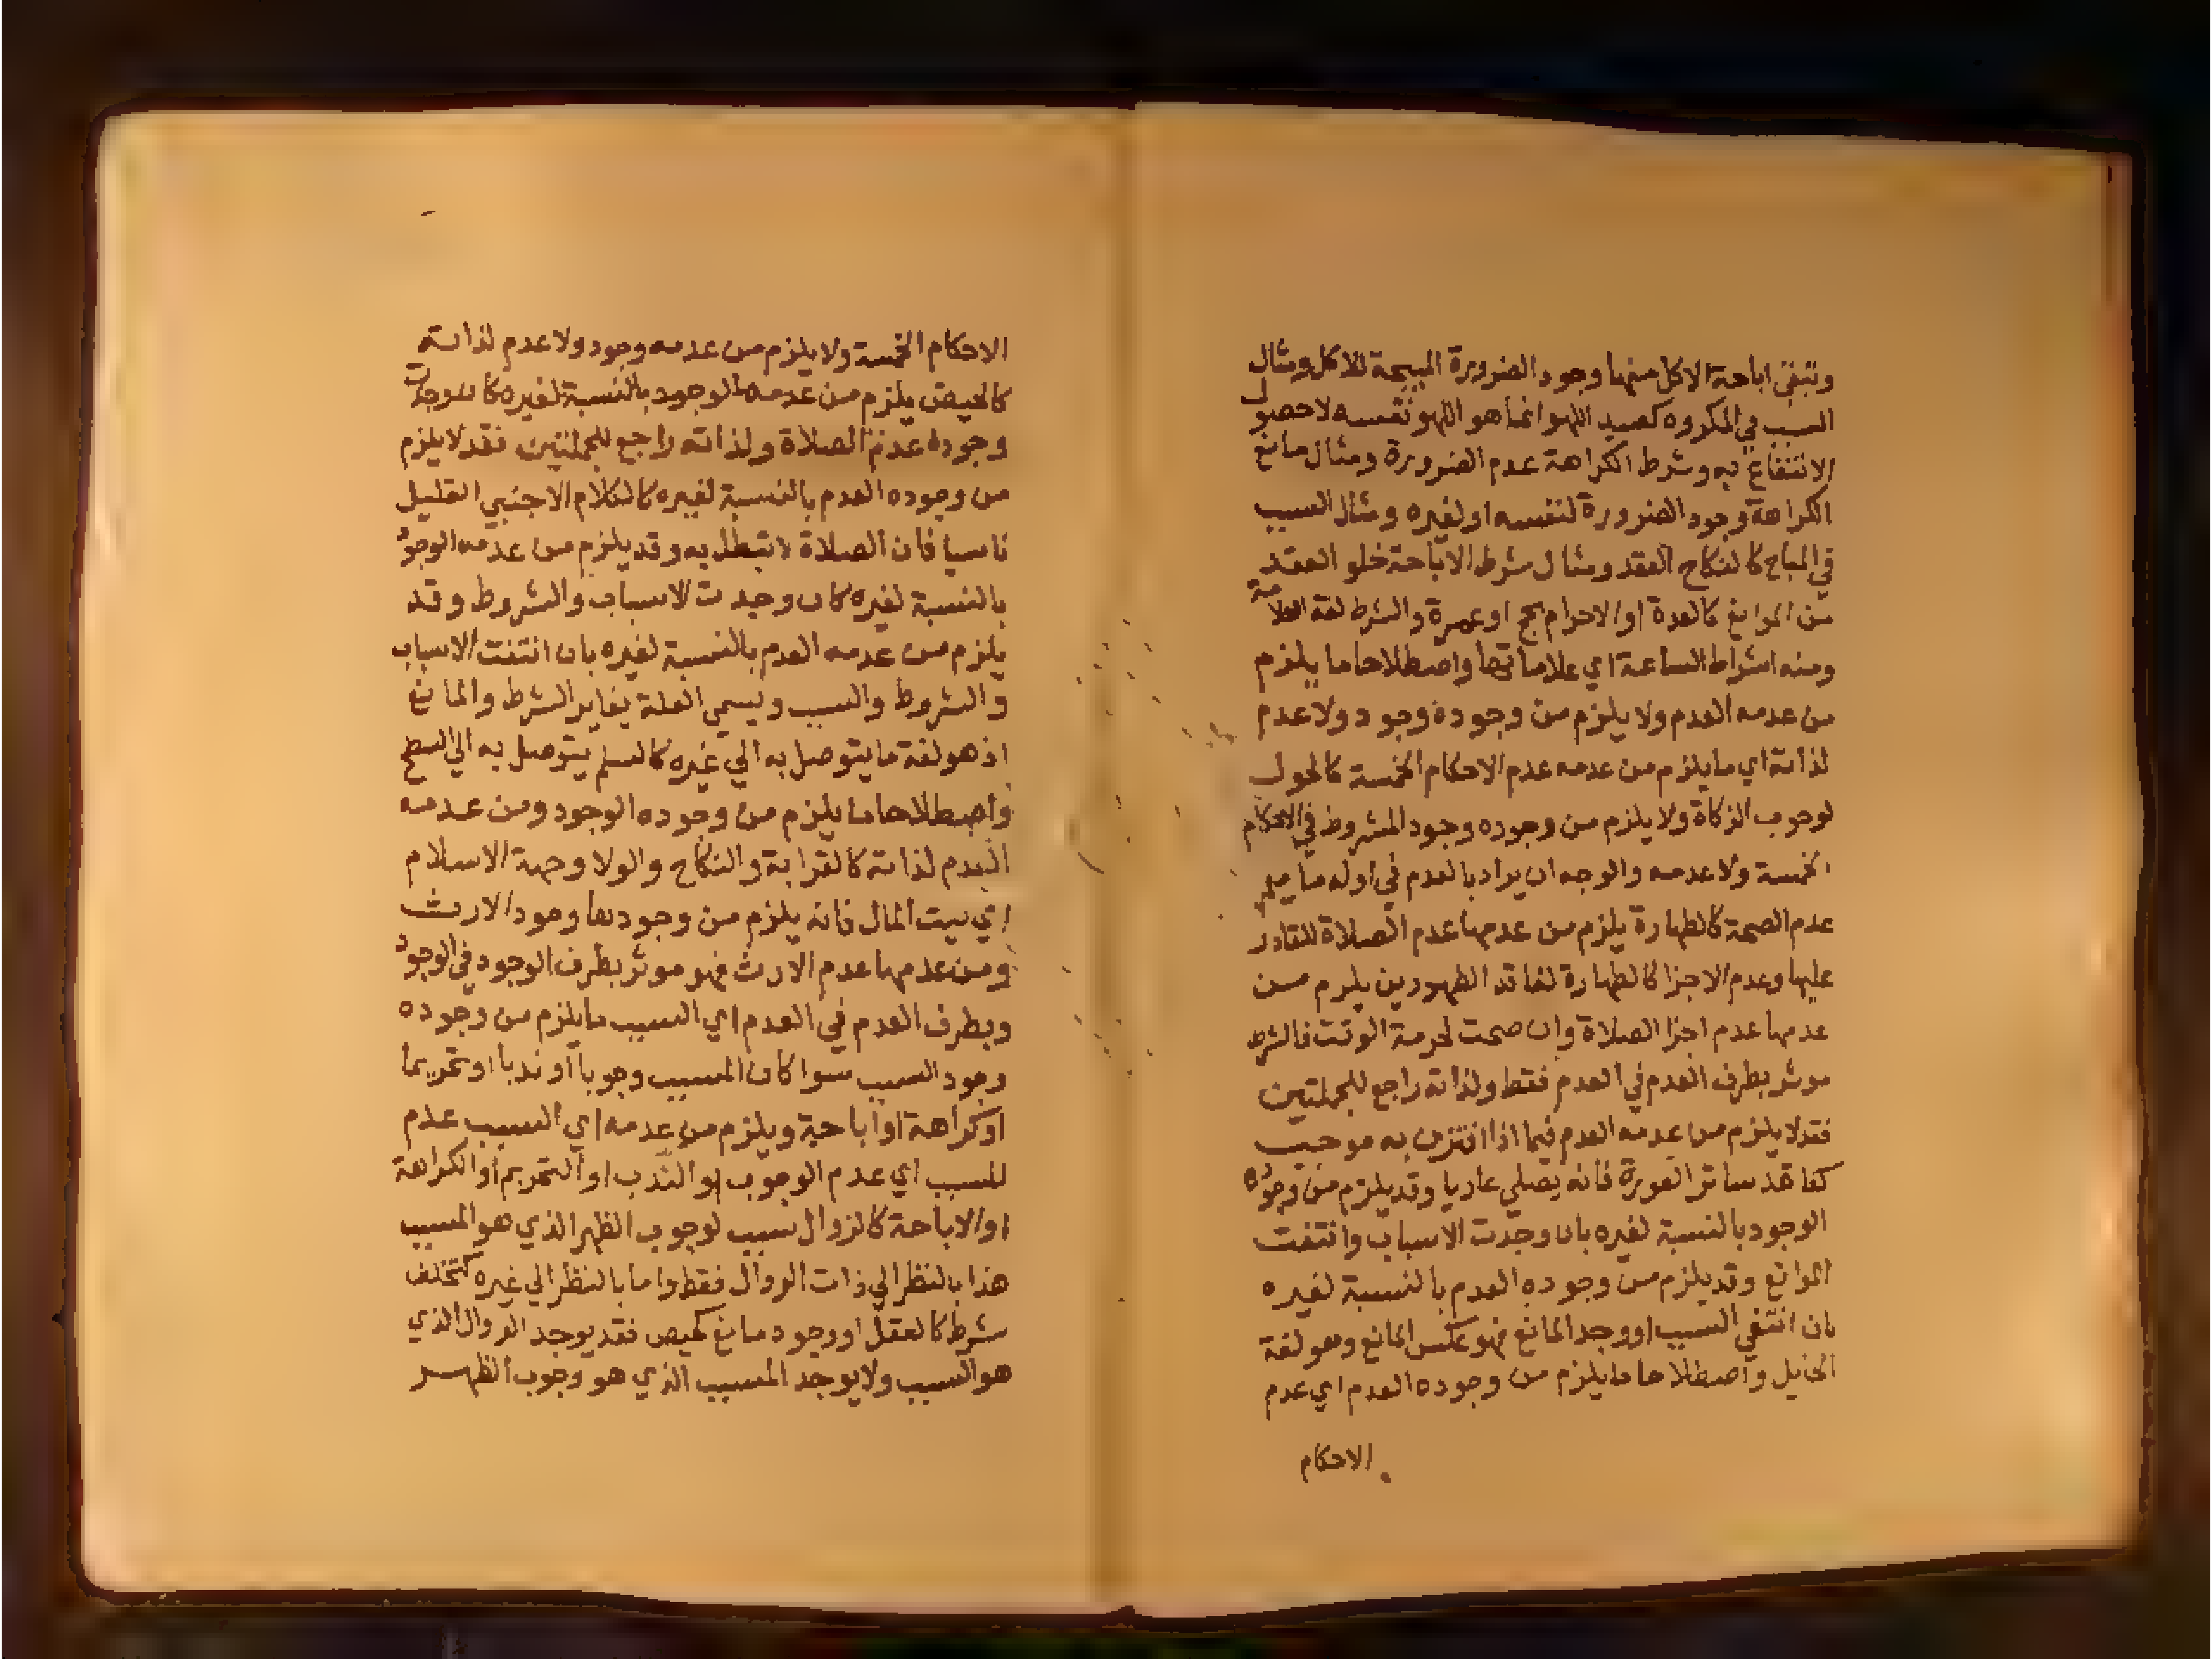 وتبقي اباحة الاكل منها وجود الضرورة المبيحة للاكل ومثال
السبب في المكروه كصيد اللهو انما هو اللهو نفسه لا حصول
الانتفاع به وشرط الكراهة عدم الضرورة ومثال مانع
الكراهة وجود الضرورة لنفسه او لغيره ومثال السبب
في المباح كالنكاح العقد ومثال شرط الاباحة خلو العقد
من الموانع كالعدة او الاحرام بحج او عمرة والشرط لغة العلامة
ومنه اشراط الساعة اي علاماتها واصطلاحا ما يلزم
من عدمه العدم ولا يلزم من وجوده وجود ولا عدم
لذاته اي ما يلزم من عدمه عدم الاحكام الخمسة كالحول
لوجوب الزكاة ولا يلزم من وجوده وجود المشروط في الاحكام
الخمسة ولا عدمه والوجه ان يراد بالعدم في اوله ما يعم
عدم الصحة كالطهارة يلزم من عدمها عدم الصلاة للقادر
عليها وعدم الاجزا كالطهارة لفاقد الطهورين يلزم من
عدمها عدم اجزا الصلاة وان صحت لحرمة الوقت فالشرط
موثر بطرف العدم في العدم فقط ولذاته راجع للجملتين
فقد لا يلزم من عدمه العدم فيما اذا اقترن به موجب
كفاقد ساتر العورة فانه يصلي عاريا وقد يلزم من وجوده
الوجود بالنسبة لغيره بان وجدت الاسباب وانتفت
الموانع وقد يلزم من وجوده العدم بالنسبة لغيره
بان انتفي السبب او وجد المانع فهو عكس المانع وهو لغة
الحايل واصطلاحا ما يلزم من وجوده العدم اي عدم
الاحكام
الاحكام الخمسة ولا يلزم من عدمه وجود ولا عدم لذاته
كالحيض يلزم من عدمه الوجود بالنسبة لغيره كان وجدت
وجوده عدم الصلاة ولذاته راجع للجملتين فقد لا يلزم
من وجوده العدم بالنسبة لغيره كالكلام الاجنبي القليل
ناسيا فان الصلاة لا تبطل به وقد يلزم من عدمه الوجود
بالنسبة لغيره كان وجدت الاسباب والشروط وقد
يلزم من عدمه العدم بالنسبة لغيره بان انتفت الاسباب
والشروط والسبب ويسمي العلة يغاير الشرط والمانع
اذ هو لغة ما يتوصل به الي غيره كالسلم يتوصل به الي السطح
واصطلاحا ما يلزم من وجوده الوجود ومن عدمه
العدم لذاته كالقرابة والنكاح والولا وجهة الاسلام
اي بيت المال فانه يلزم من وجودها وجود الارث
ومن عدمها عدم الارث فهو موثر بطرف الوجود في الوجود
وبطرف العدم في العدم اي السبب ما يلزم من وجوده
وجود السبب سوا كان المسبب وجوبا او ندبا او تحريما
او كراهة او اباحة ويلزم من عدمه اي السبب عدم
المسبب اي عدم الوجوب او الندب او التحريم او الكراهة
او الاباحة كالزوال سبب لوجوب الظهر الذي هو المسبب
هذا بالنظر الي ذات الزوال فقط واما بالنظر الي غيره كتخلف
شرط كالعقل او وجود مانع كحيض فقد يوجد الزوال الذي
هو السبب ولا يوجد المسبب الذي هو وجوب الظهر